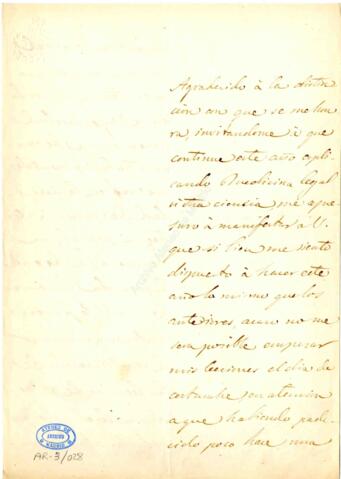 Agradecido á la distin
cion con que se me hon
ra, invitandome á que
continue este año espli
cando Medicina legal
u otra ciencia me apre
suro á manifestar á V.
que si bien me siento
dispuesto á hacer este
año lo mismo que los
anteriores, acaso no me
sera posible empezar
mis lecciones el dia de
costumbre, en atencion
a que habiendo pade-
cido poco hace una
ATENEO DE
MADRID
AR-3/028